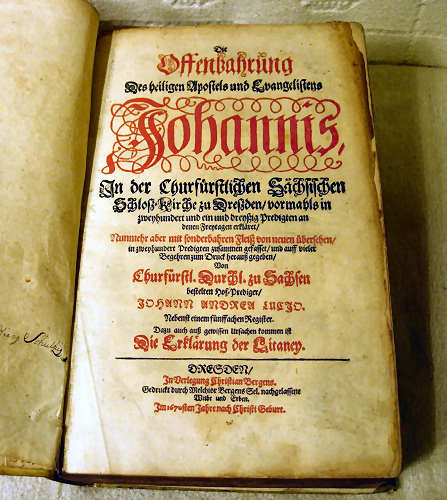 Die
Offenbahrung
Des heiligen Apostels und Evangelistens
Johannis,
In der Churfürstlichen Sächsischen
Schloß-Kirche zu Dreßden/ vormahls in
zweyhundert und ein und dreyßig Predigten an
denen Freytagen erkläret/
Nunmehr aber mit sonderbahren Fleiß von neuen übersehen/
in zweyhundert Predigten zusammen gefasset/ und auff vieler
Begehren zum Druck herauß gegeben/
Von
Churfürstl. Durchl. zu Sachsen
bestelten Hof-Prediger/
JOHANN ANDREA LUCIO.
Nebenst einem fünffachen Register.
Dazu auch auß gewissen Ursachen kommen ist
Die Erklärung der Litaney.
DRESDEN/
In Verlegung Christian Bergens.
Gedruckt durch Melchior Bergens Sel. nachgelassene
Witbe und Erben.
Im 1670sten Jahre nach Christi Geburt.